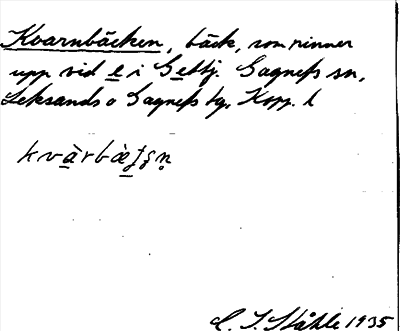 Kvarnbäcken, bäck, som rinner
upp vid e i Getbj. Gagnefs sn,
Leksands o Gagnefs tg, Kopp. l
kvàrbæ̀ʈʂn̥
C. I. Ståhle 1935